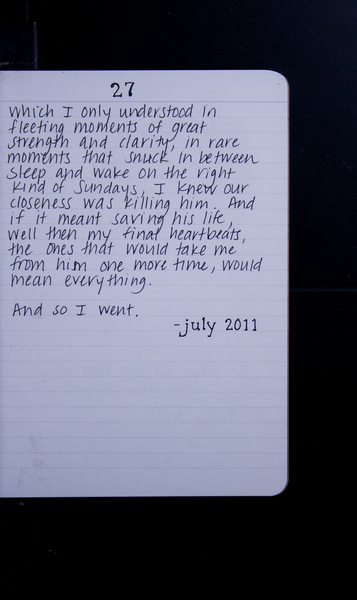 27
Which I only understood in
fleeting moments of great
strength and clarity, in rare
moments that snuck in between
sleep and wake on the right
kind of Sundays, I knew our
closeness was killing him. And
if it meant saving his life,
well then my final heartbeats,
the ones that would take me
from him one more time, would
mean everything.
And so I went.
-july 2011